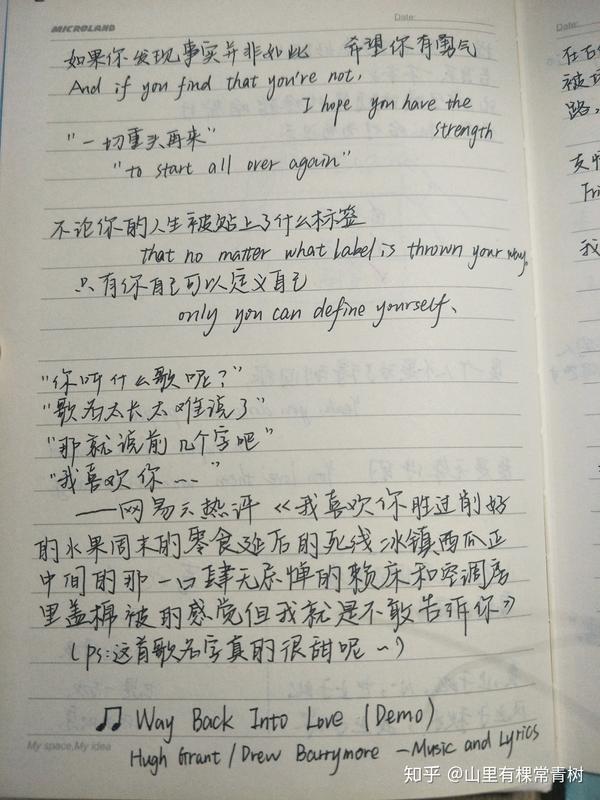 MICROLAND
Date:
Date:
如果你发现事实并非如此 希望你有勇气
And if you find that you're not,
I hope you have the
strength
"一切重头再来"
"to start all over again"
不论你的人生被贴上了什么标签
that no matter what label is thrown your way。
只有你自己可以定义自己
only you can define yourself、
"你听什么歌呢？"
"歌名太长太难说了"
"那就说前几个字吧"
"我喜欢你……"
——网易云热评《我喜欢你胜过削好
的水果周末的零食延后的死线冰镇西瓜正
中间的那一口肆无忌惮的赖床和空调房
里盖棉被的感觉但我就是不敢告诉你》
(ps:这首歌名字真的很甜呢~)
♫ Way Back Into Love (Demo)
Hugh Grant / Drew Barrymore —Music and Lyrics
My space,My idea
在
被
路，
友情
Fri
我
知乎 @山里有棵常青树